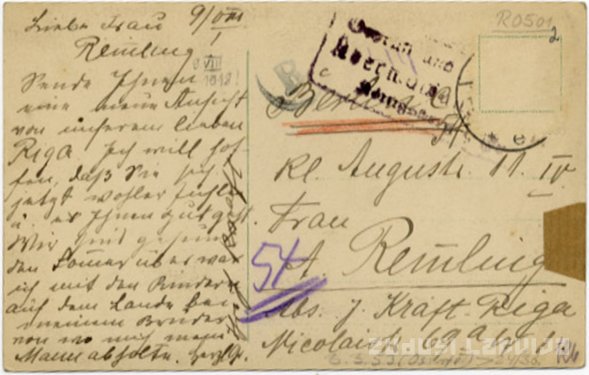 9/VIII
Liebe Frau
Remling!
Sende Ihnen
eine neue Ansicht
von unserem lieben
Riga Ich will hof
fen, daß Sie sich
jetzt wohler fühlen
u. es Ihnen gut geht.
Wir sind gesund
den Sommer über war
ich mit den Kindern
auf dem Lande bei
meinem Bruder
von wo mich mein
Mann abholte. Herzl. Gr.
9 VIII
1918!
R0501
2
Berlin
54
Kl. Auguststr 11 IV
Frau
A. Remling
54
Abs. J. Kraft. Riga
Nicolaistr